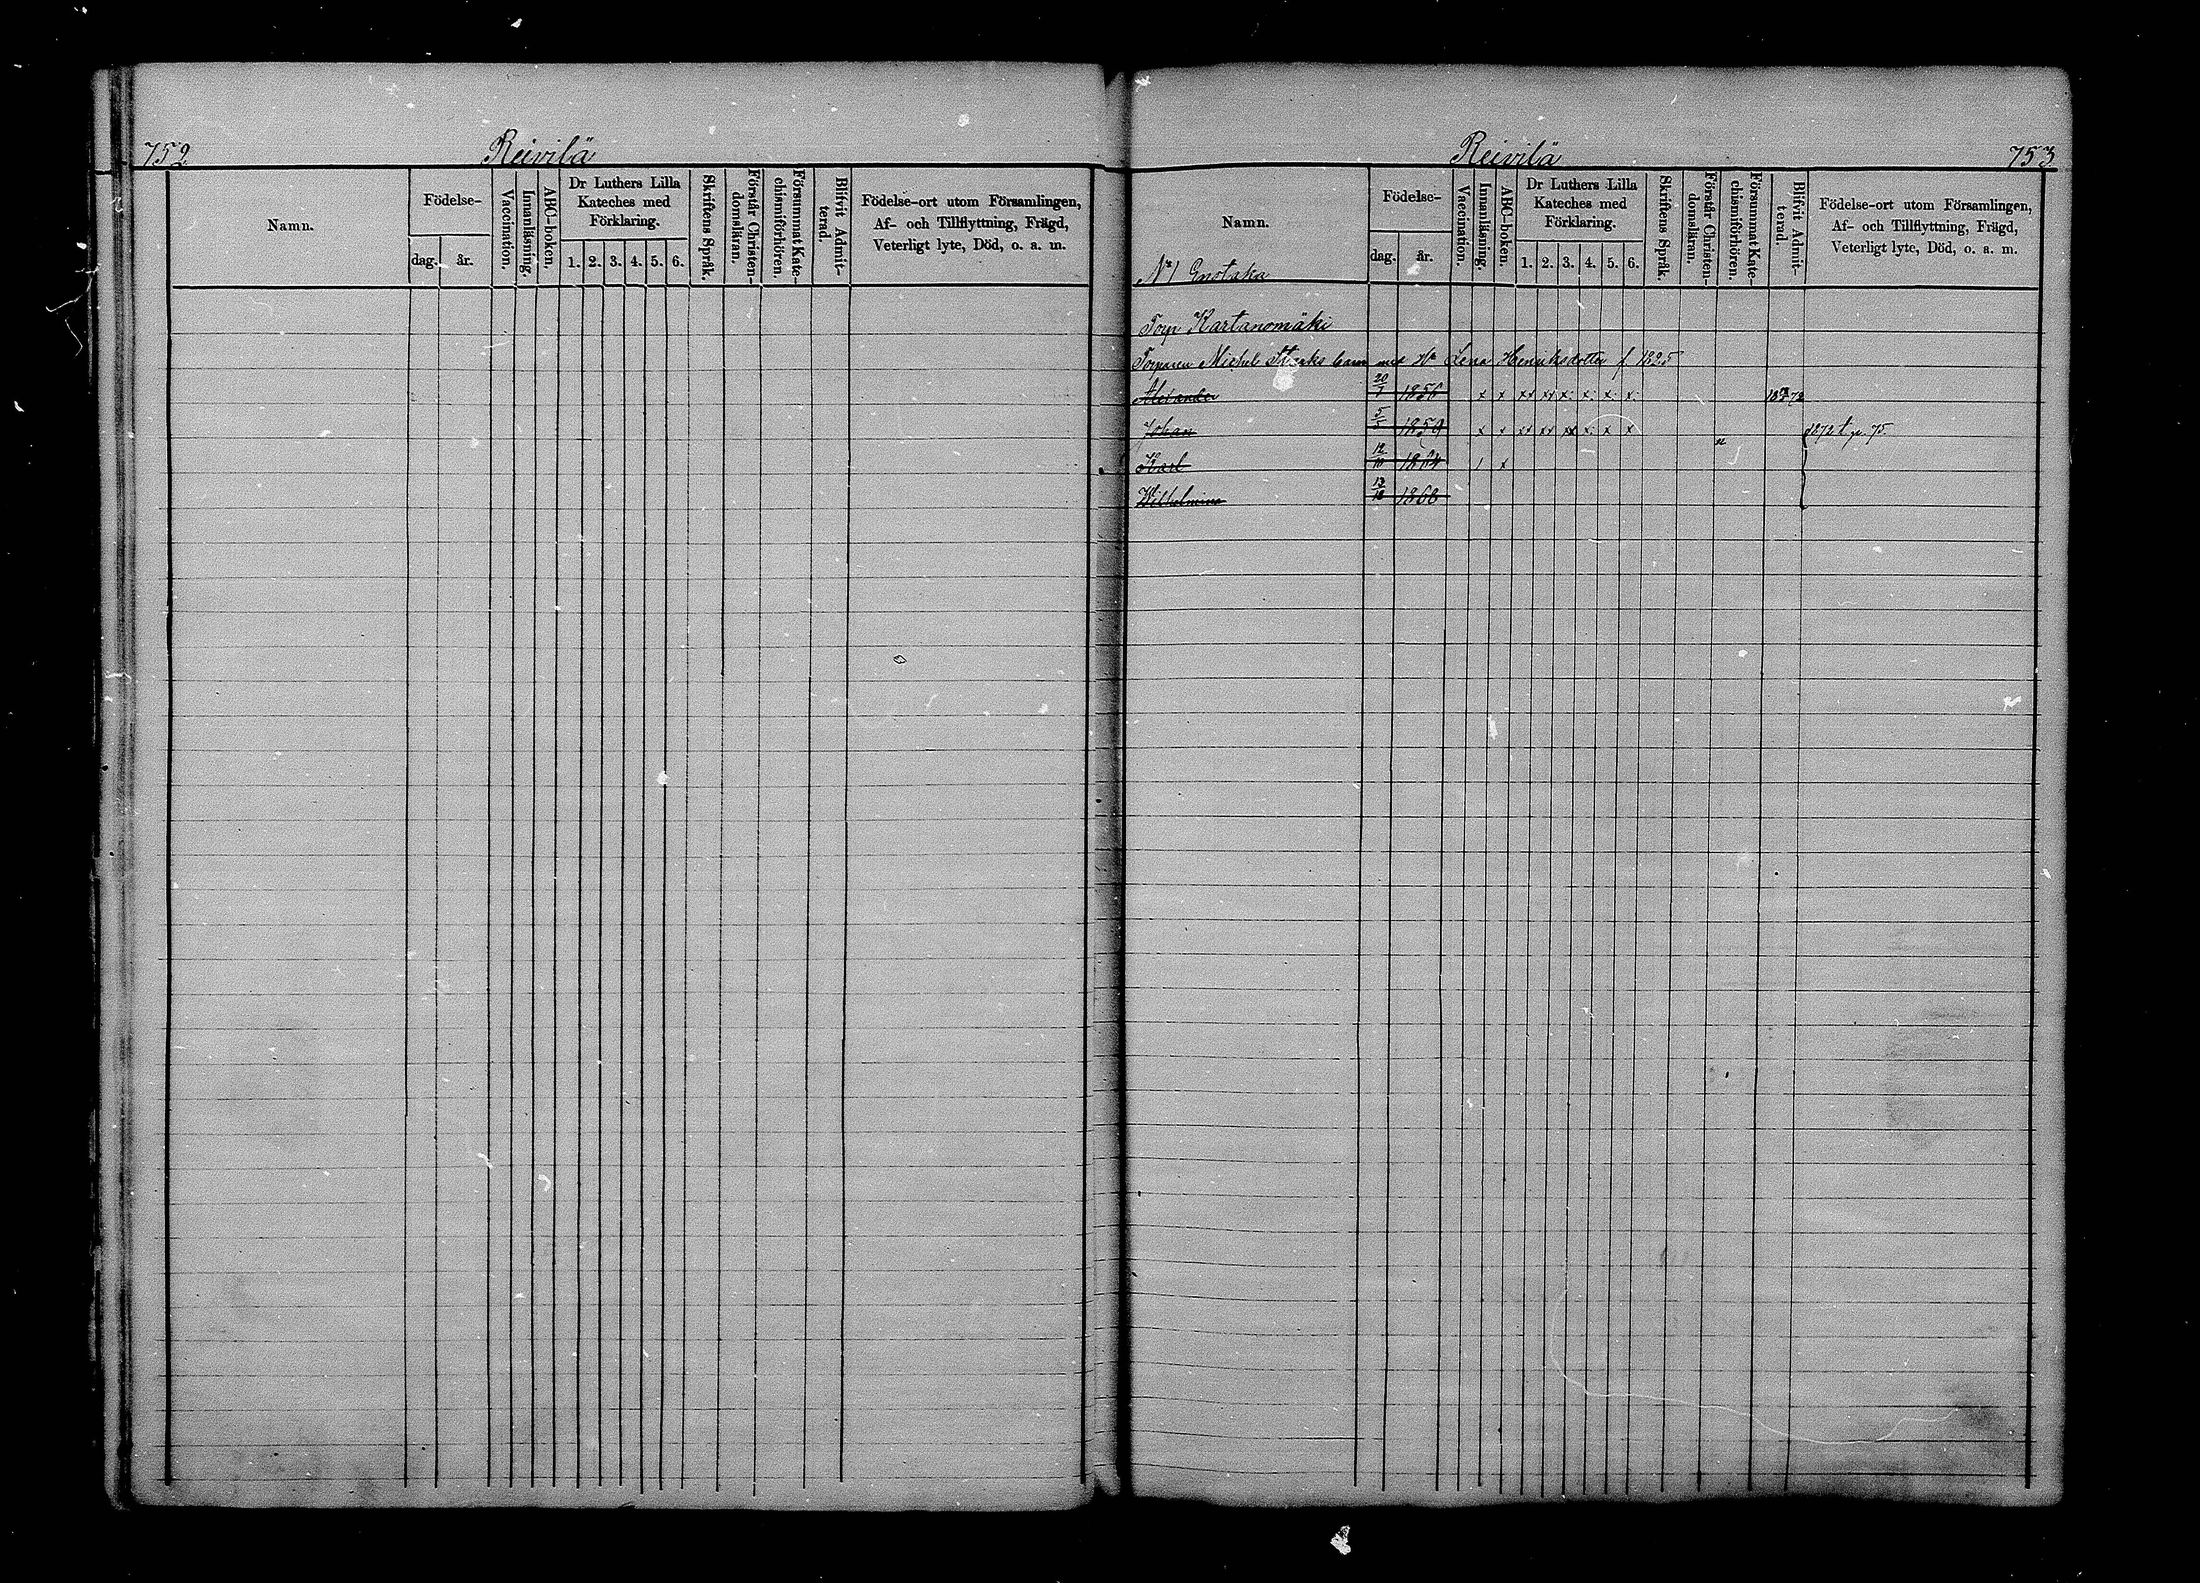 752 Reivilä
Namn. Födelse- dag. år. Vaccination. Innanläsning. ABC-boken. Dr Luthers Lilla Kateches med Förklaring. 1. 2. 3. 4. 5. 6. Skriftens Språk. Förstår Christen-domsläran. Försummat Kate-chismiförhören. Blifvit Admit-terad. Födelse-ort utom Församlingen, Af- och Tillflyttning, Frägd, Veterligt lyte, Död, o. a. m.
Reivilä 753
Namn. Födelse- dag. år. Vaccination. Innanläsning. ABC-boken. Dr Luthers Lilla Kateches med Förklaring. 1. 2. 3. 4. 5. 6. Skriftens Språk. Förstår Christen-domsläran. Försummat Kate-chismiförhören. Blifvit Admit-terad. Födelse-ort utom Församlingen, Af- och Tillflyttning, Frägd, Veterligt lyte, Död, o. a. m.
Torp Kartanomäki
Torparen Michel Starks barn med Lena Henriksdotter f 1825
Alexander 1856 x x xx xx x x x x
Johan 5/5 1859 x x xx xx xx x x x
Karl 12/10 1864 x
Wilhelmina 1868